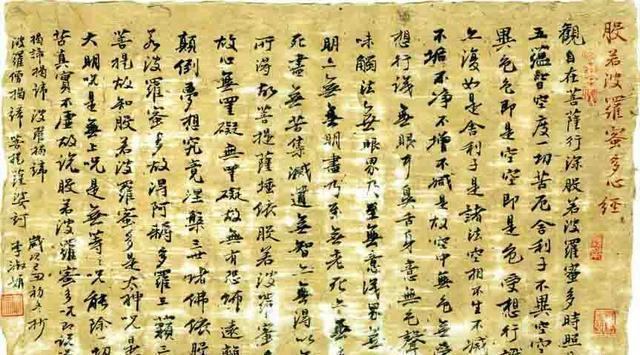 般若波羅蜜多心經
觀自在菩薩行深般若波羅蜜多時照
五蘊皆空度一切苦厄舍利子不異空空
異色色即是空空即是色受想行
亦復如是舍利子是諸法空相不生不滅
不垢不淨不增不減是故空中無色無
想行識無眼耳鼻舌身意無色聲
味觸法無眼界乃至無意識界無
明亦無無明盡乃至無老死亦無
死盡無苦集滅道無智亦無得以
所得故菩提薩埵依般若波羅蜜
故心無罣礙無罣礙故無有恐怖遠離
顛倒夢想究竟涅槃三世諸佛依般
若波羅蜜多故得阿耨多羅三藐三
菩提故知般若波羅蜜多是大神咒是
大明咒是無上咒是無等等咒能除一切
苦真實不虛故說般若波羅蜜多咒即說
揭諦揭諦波羅揭諦
波羅僧揭諦菩提薩婆訶
歲次 初冬抄
李淑娟